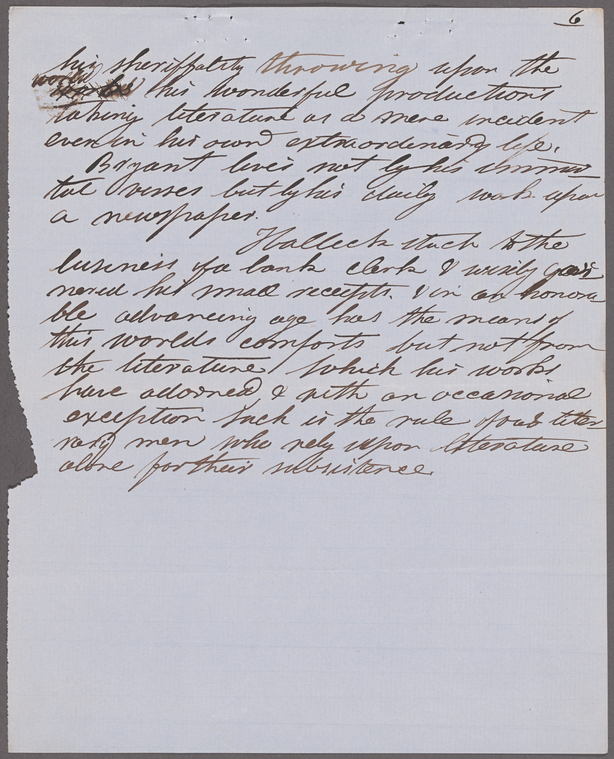 6
his sheriffality throwing upon the
world his wonderful productions
taking literature as a mere incident
even in his own extraordinary life.
Bryant lives not by his immor
tal verses but by his daily work upon
a newspaper.
Halleck stuck to the
business of a bank clerk & wisely gar
nered his small receipts. & in an honora
ble advancing age has the means of
this worlds comforts but not from
the literature which his works
have adorned & with an occasional
exception such is the rule of our liter
rary men who rely upon literature
alone for their subsistence.